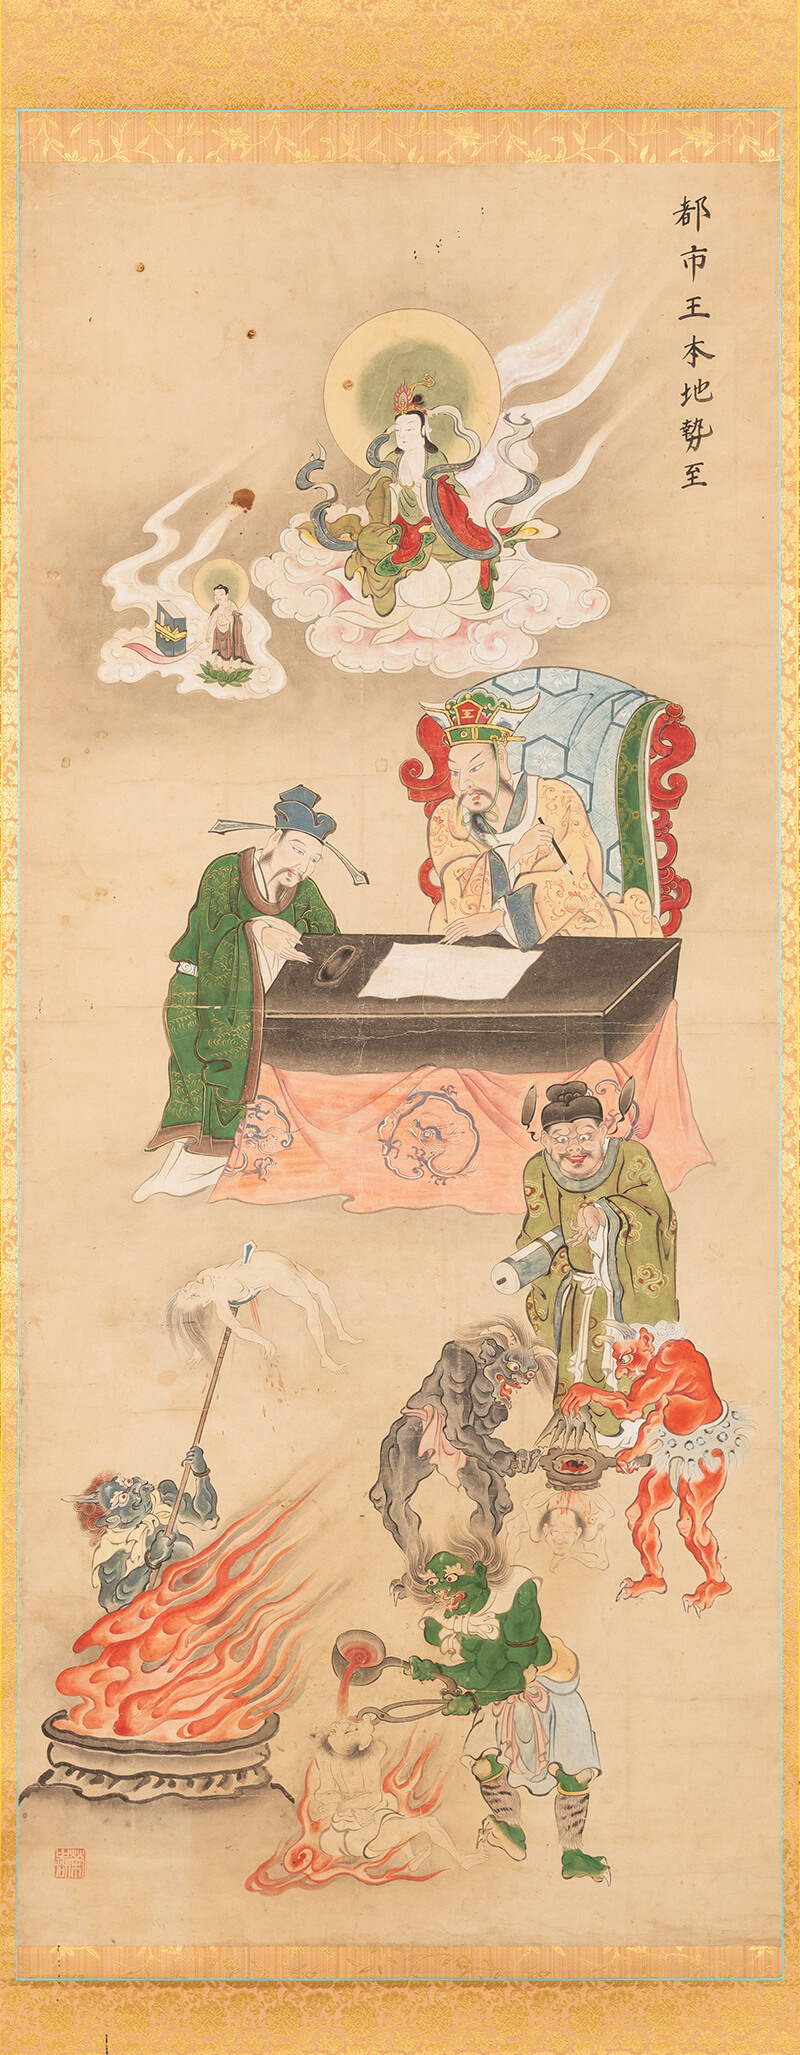 都市王本地勢至
王